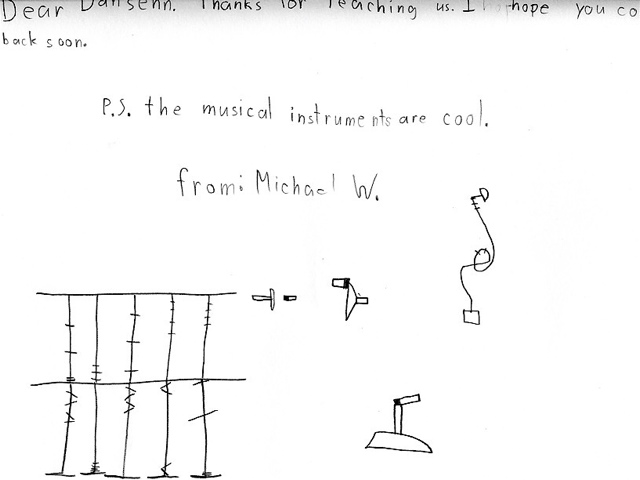 Dear Dansenn. Thanks for teaching us. I hope you co
back soon.
P.S. the musical instruments are cool.
from: Michael W.